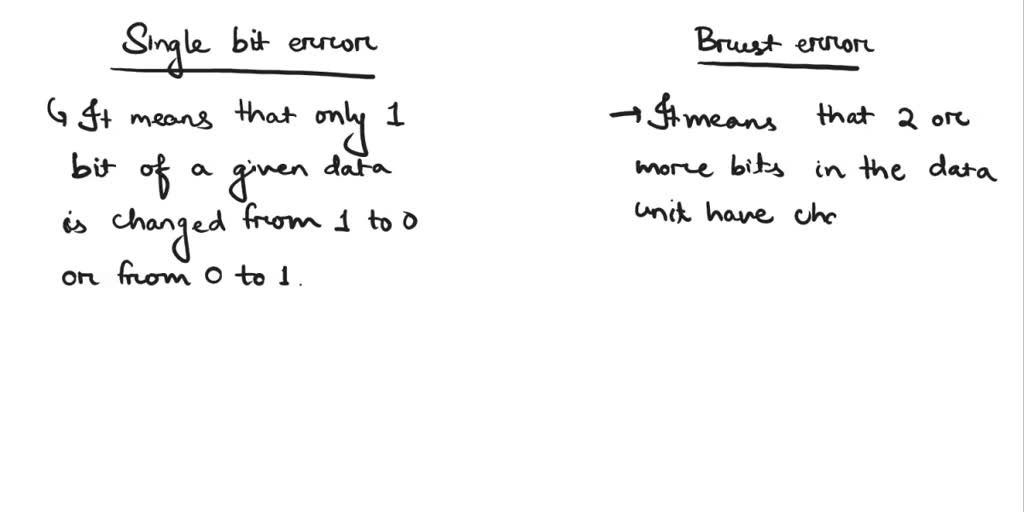 Single bit error
It means that only 1
bit of a given data
is changed from 1 to 0
or from 0 to 1.
Brust error
→ It means that 2 or
more bits in the data
unit have cha